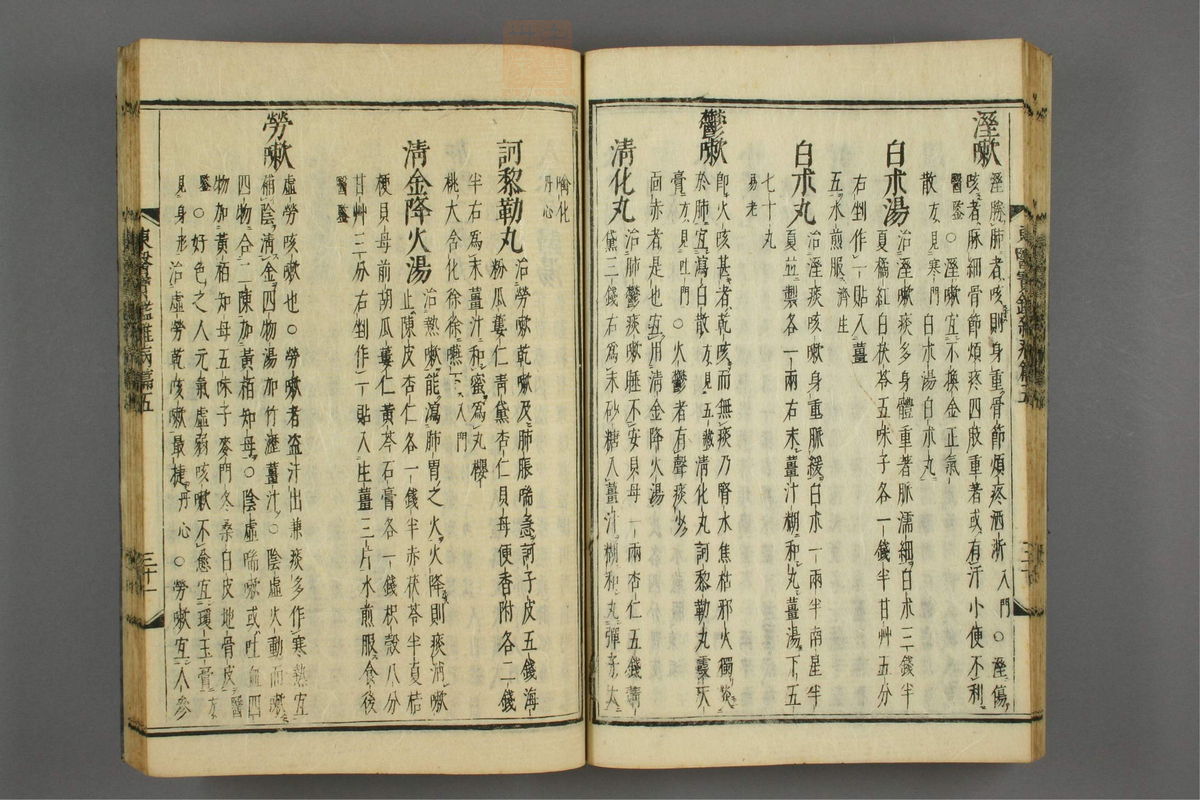 溼嗽
溼勝肺者咳則身重骨節煩疼洒淅入門○溼傷
咳者脉細骨節煩疼四肢重著或有汗小便不利
醫鑒○溼嗽宜不換金正氣
散方見寒門白朮湯白朮丸
白朮湯
治溼嗽痰多身體重著脉濡細白朮三錢半
夏橘紅白茯苓五味子各一錢半甘艸五分
右剉作一貼入薑
五水煎服濟生
白朮丸
治溼痰咳嗽身重脈緩白朮一兩半南星半
夏並製各一兩右末薑汁糊和丸薑湯下五
七十丸
易老
鬱嗽
即火咳甚者乾咳而無痰乃腎水焦枯邪火獨炎
於肺宜瀉白散方見五藏淸化丸訶黎勒丸霞天
膏方見吐門○火鬱者有聲痰少
面赤者是也宜用淸金降火湯
淸化丸
治肺鬱痰嗽睡不安貝母一兩杏仁五錢靑
黛三錢右爲末砂糖入薑汁糊和丸彈子大
噙化
丹心
訶黎勒丸
治勞嗽乾嗽及肺脹喘急訶子皮五錢海
粉瓜蔞仁靑黛杏仁貝母便香附各二錢
半右爲末薑汁和蜜爲丸櫻
桃大含化徐徐嚥下入門
淸金降火湯
治熱嗽能瀉肺胃之火火降則痰消嗽
止陳皮杏仁各一錢半赤茯苓半夏桔
梗貝母前胡瓜蔞仁黃芩石膏各一錢枳殼八分
甘艸三分右剉作一貼入生薑三片水煎服食後
醫鑒
勞嗽
虛勞咳嗽也○勞嗽者盜汗出兼痰多作寒熱宜
補陰淸金四物湯加竹瀝薑汁○陰虛火動而嗽
四物合二陳加黃栢知母○陰虛喘嗽或吐血四
物加黃栢知母五味子麥門冬桑白皮地骨皮醫
鑒○好色之人元氣虛弱咳嗽不愈宜瓊玉膏方
見身形治虛勞乾咳嗽最捷丹心○勞嗽宜人參
東醫寶鑑雜病篇五
三十一